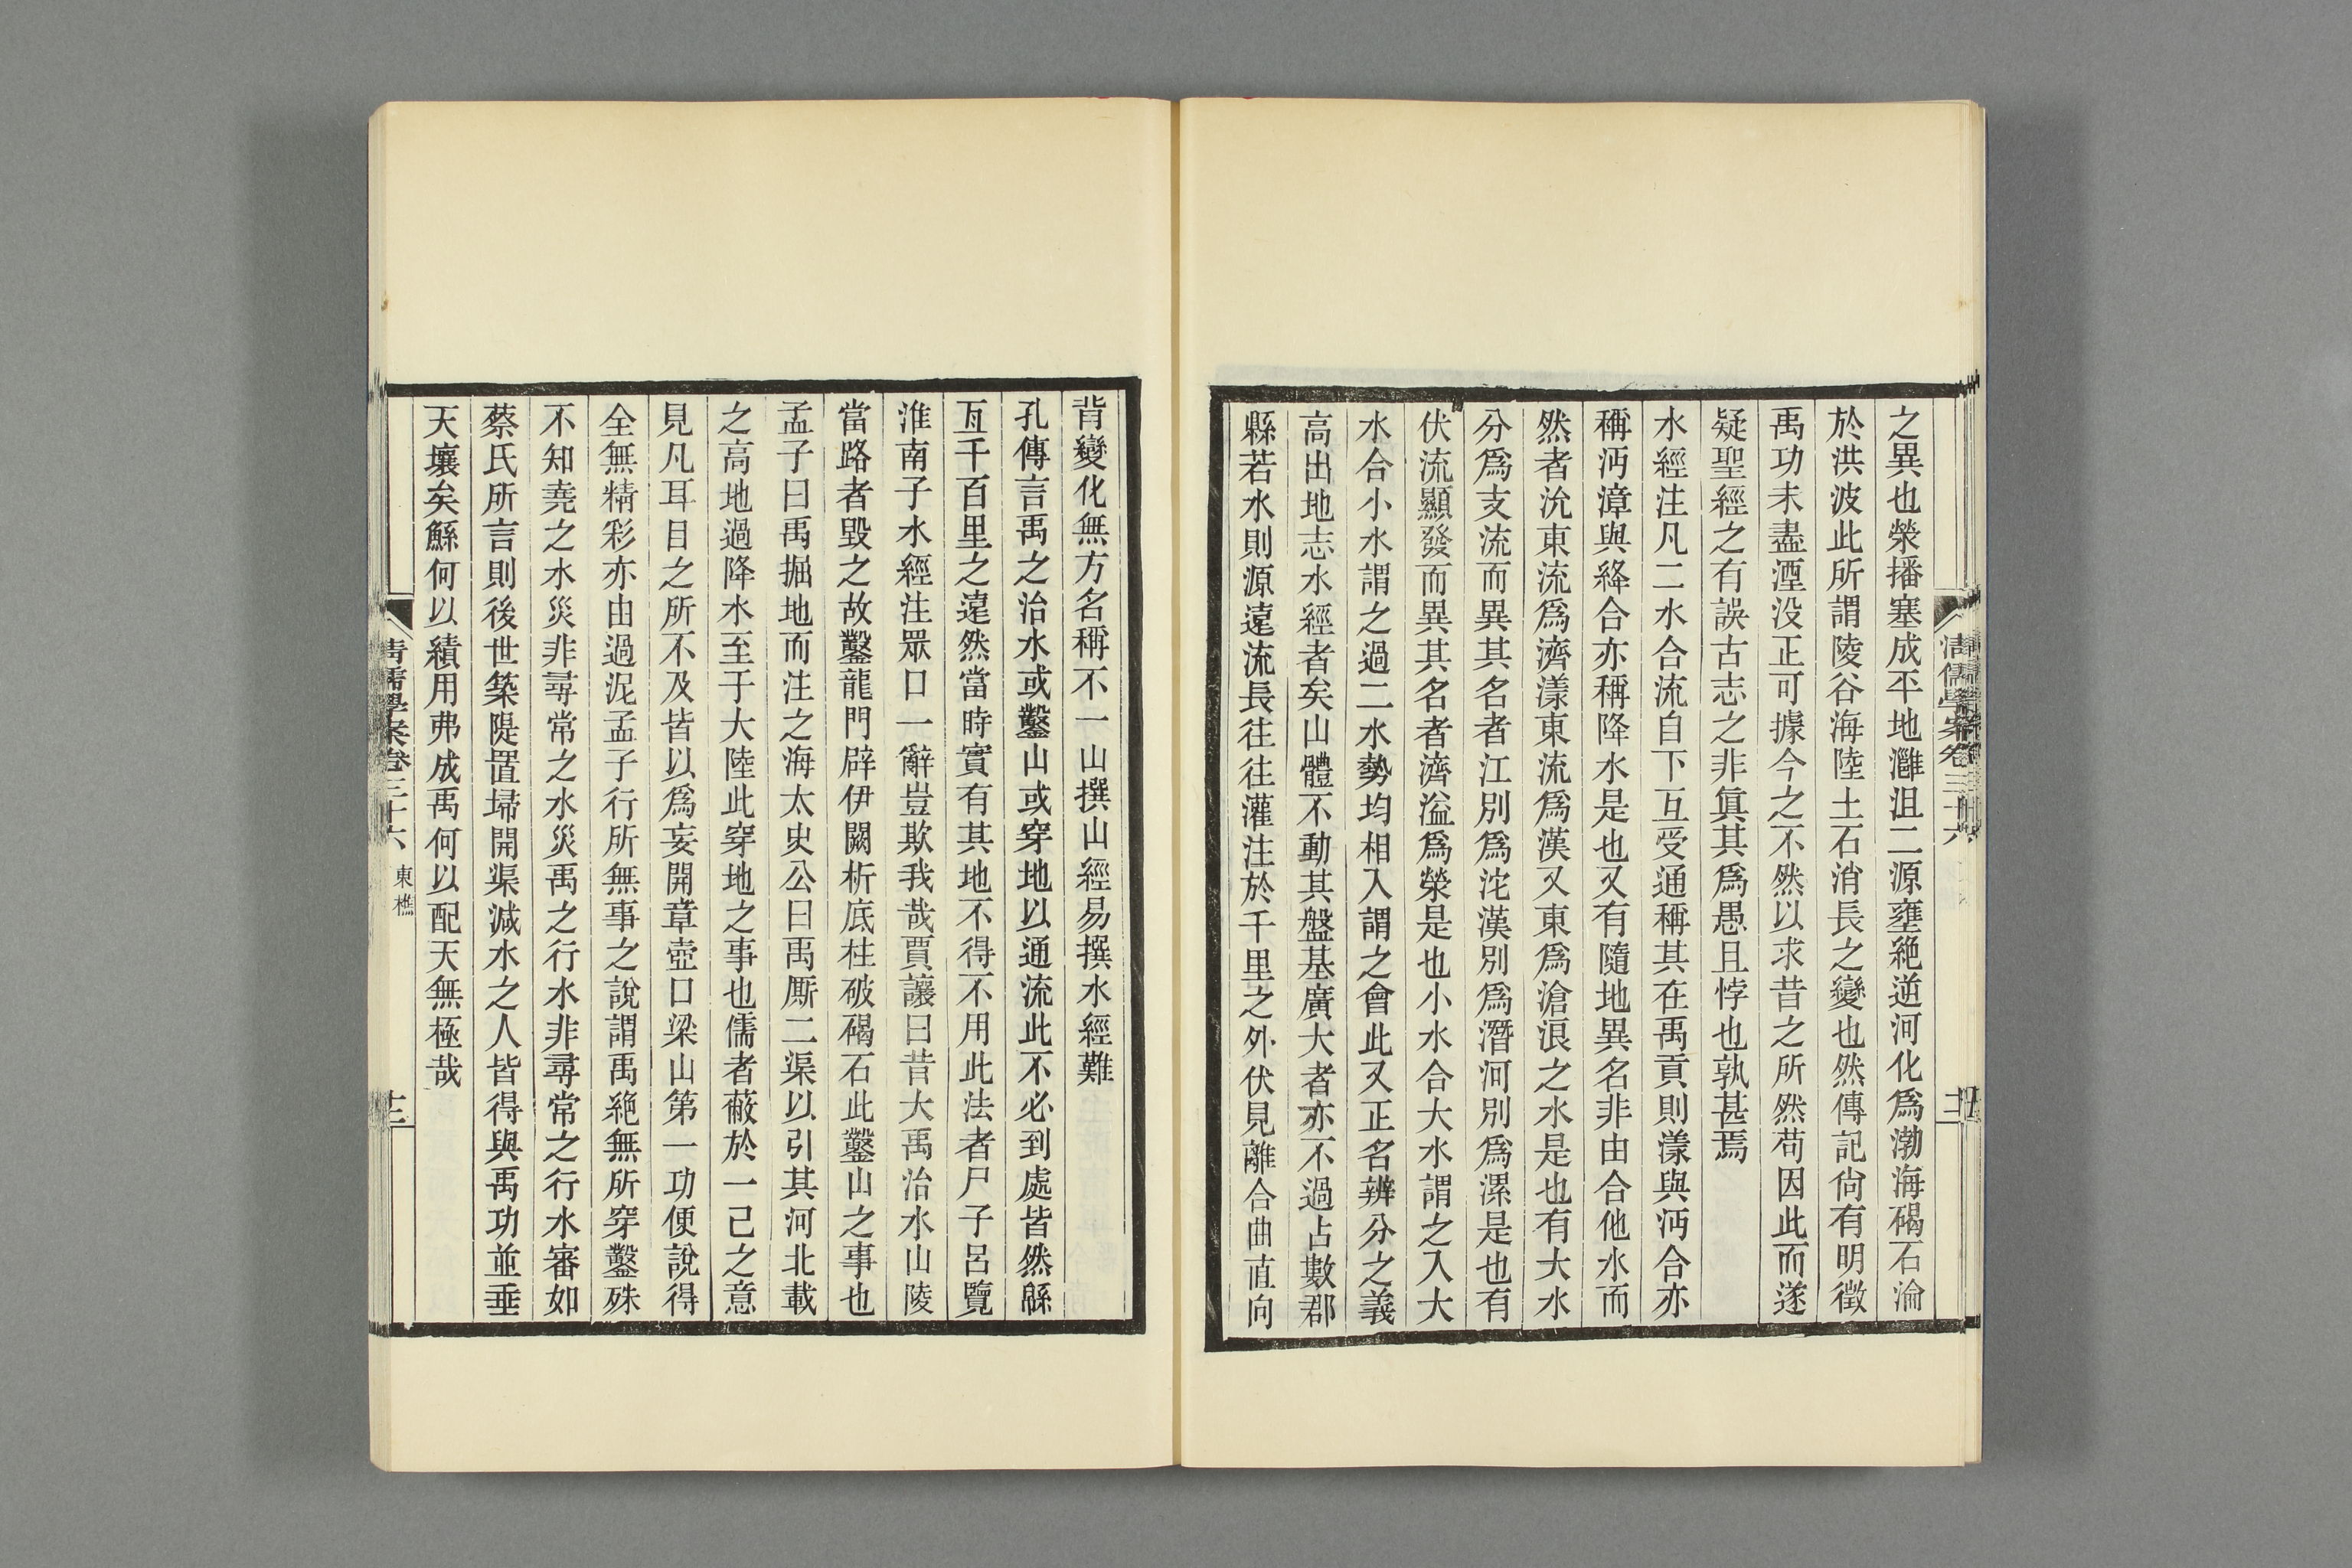 之異也滎播塞成平地灉沮二源壅絕逆河化爲渤海碣石淪
於洪波此所謂陵谷海陸土石消長之變也然傳記尙有明徵
禹功未盡湮没正可據今之不然以求昔之所然苟因此而遂
疑聖經之有誤古志之非眞其爲愚且悖也孰甚焉
水經注凡二水合流自下互受通稱其在禹貢則漾與沔合亦
稱沔漳與絳合亦稱降水是也又有隨地異名非由合他水而
然者沇東流爲濟漾東流爲漢又東爲滄浪之水是也有大水
分爲支流而異其名者江別爲沱漢別爲潛河別爲漯是也有
伏流顯發而異其名者濟溢爲滎是也小水合大水謂之入大
水合小水謂之過二水勢均相入謂之會此又正名辨分之義
高出地志水經者矣山體不動其盤基廣大者亦不過占數郡
縣若水則源遠流長往往灌注於千里之外伏見離合曲直向
背變化無方名稱不一山撰山經易撰水經難
孔傳言禹之治水或鑿山或穿地以通流此不必到處皆然緜
亙千百里之遠然當時實有其地不得不用此法者尸子呂覽
淮南子水經注眾口一辭豈欺我哉賈讓曰昔大禹治水山陵
當路者毀之故鑿龍門辟伊闕析底柱破碣石此鑿山之事也
孟子曰禹掘地而注之海太史公曰禹厮二渠以引其河北載
之高地過降水至于大陸此穿地之事也儒者蔽於一己之意
見凡耳目之所不及皆以爲妄開章壺口梁山第一功便說得
全無精彩亦由過泥孟子行所無事之說謂禹絕無所穿鑿殊
不知堯之水災非尋常之水災禹之行水非尋常之行水審如
蔡氏所言則後世築隄置埽開渠減水之人皆得與禹功並垂
天壤矣鯀何以績用弗成禹何以配天無極哉
清儒學案卷三十六 東樵